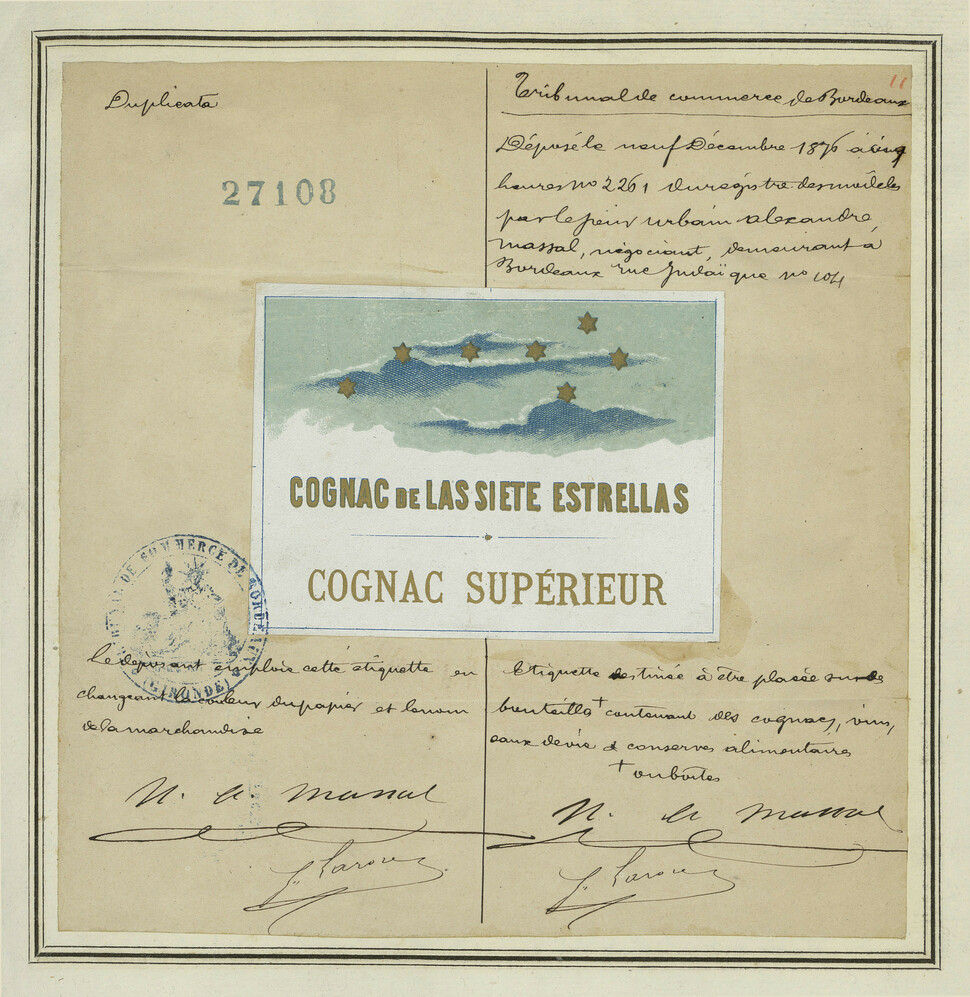 Duplicata
27108
11
Tribunal de commerce de Bordeaux
Déposé le neuf Décembre 1876 à cinq
heures no 2261 du registre des modèles
par le sieur urbain alexandre
massal, négociant, demeurant à
Bordeaux rue Judaïque no 104
COGNAC DE LAS SIETE ESTRELLAS
COGNAC SUPÉRIEUR
TRIBUNAL DE COMMERCE DE BORDEAUX
(GIRONDE)
le déposant emploie cette étiquette en
changeant la couleur du papier et le nom
de la marchandise
U. A. Massal
étiquette destinée à être placée sur des
bouteilles + contenant des cognacs, vins,
eaux de vie & conserves alimentaires
+ ou boites
U. A. Massal